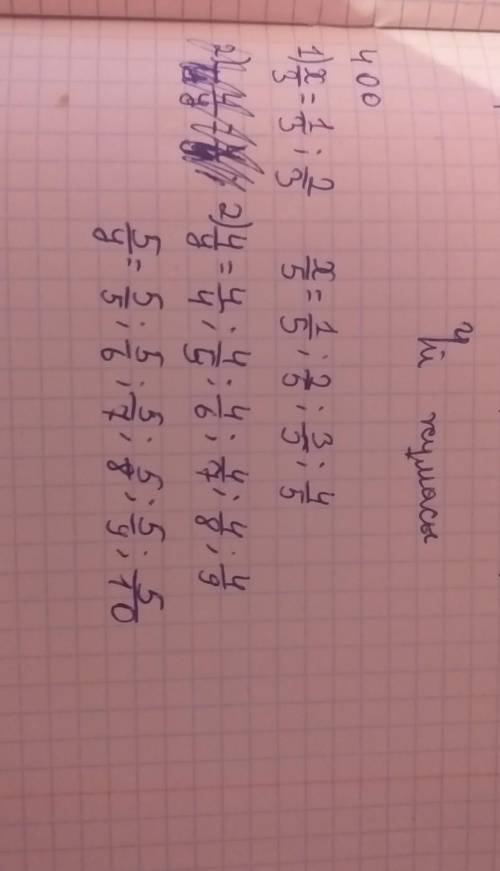 Үй жұмысы
400
1) x/3 = 1/3; 2/3 x/5 = 1/5; 2/5; 3/5; 4/5
2) 4/y = 4/4; 4/5; 4/6; 4/7; 4/8; 4/9
5/y = 5/5; 5/6; 5/7; 5/8; 5/9; 5/10